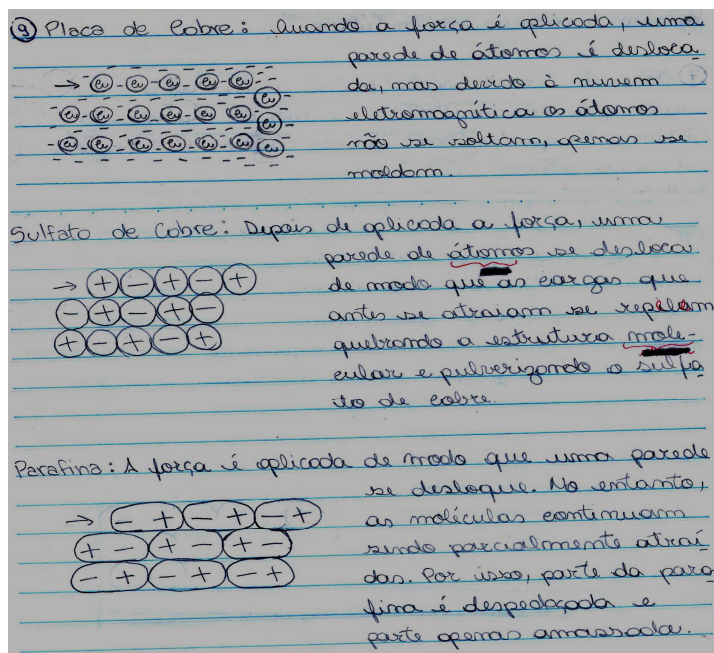 9 Placa de Cobre: Quando a força é aplicada, uma
parede de átomos é desloca
da, mas devido à nuvem
eletromagnética os átomos
não se soltam, apenas se
moldam.
→ Cu - Cu - Cu - Cu - Cu
Cu - Cu - Cu - Cu - Cu - Cu - Cu
Cu - Cu - Cu - Cu - Cu - Cu - Cu - Cu
Sulfato de Cobre: Depois de aplicada a força, uma
parede de átomos se desloca
de modo que as cargas que
antes se atraiam se repilam
quebrando a estrutura mole-
cular e pulverizando o sulfa
to de cobre.
→ + - + - +
- + - + -
+ - + - +
Parafina: A força é aplicada de modo que uma parede
se desloque. No entanto,
as moléculas continuam
sendo parcialmente atraí
das. Por isso, parte da para
fina é despedaçada e
parte apenas amassada.
→ - + - + - +
+ - + - + -
- + - + - +